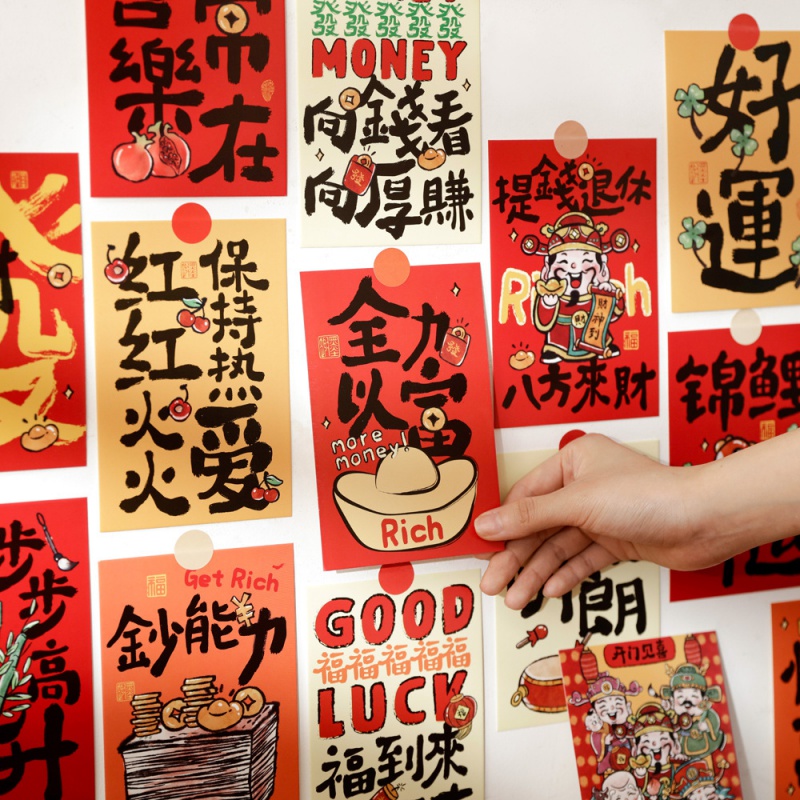 樂
常在
發發發發發
MONEY
向錢看
向厚賺
發
好運
提錢退休
財
財神到
八方來財
福
红红火火
保持热爱
全力
以富
發
more
money!
Rich
锦鲤
步步高升
Get Rich
福
鈔能力
¥
GOOD
福福福福福
LUCK
福到來
朗
开门见喜